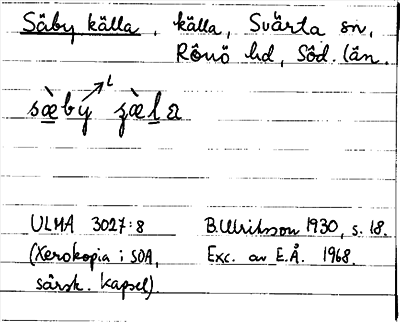 Säby källa, källa, Svärta sn,
Rönö hd, Söd. län.
sæ̀by zæ̀la
ULMA 3027:8 B.Ulriksson 1930, s. 18.
(Xerokopia i SOA, Exc. av E.Å. 1968.
särsk. kapsel)